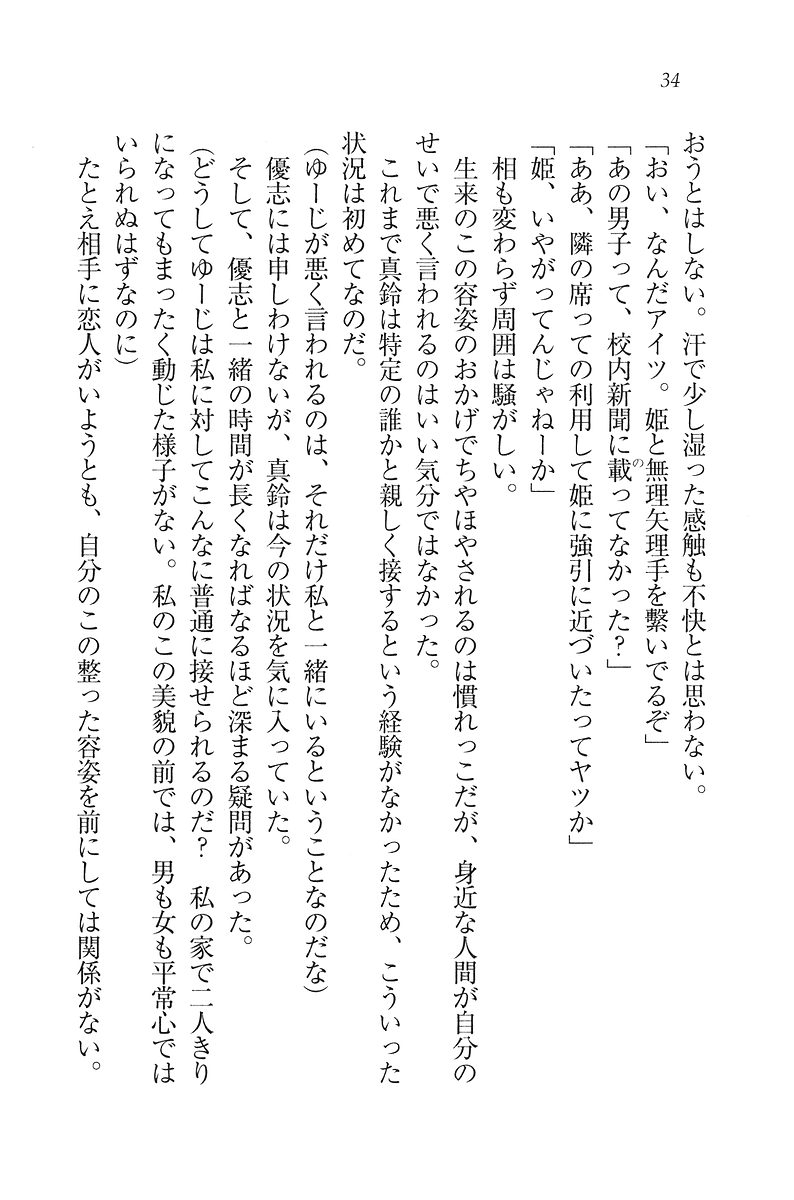 34
おうとはしない。汗で少し湿った感触も不快とは思わない。
「おい、なんだアイツ。姫と無理矢理手を繋いでるぞ」
「あの男子って、校内新聞に載ってなかった？」
「ああ、隣の席っての利用して姫に強引に近づいたってヤツか」
「姫、いやがってんじゃねーか」
　相も変わらず周囲は騒がしい。
　生来のこの容姿のおかげでちやほやされるのは慣れっこだが、身近な人間が自分の
せいで悪く言われるのはいい気分ではなかった。
　これまで真鈴は特定の誰かと親しく接するという経験がなかったため、こういった
状況は初めてなのだ。
（ゆーじが悪く言われるのは、それだけ私と一緒にいるということなのだな）
　優志には申しわけないが、真鈴は今の状況を気に入っていた。
　そして、優志と一緒の時間が長くなればなるほど深まる疑問があった。
（どうしてゆーじは私に対してこんなに普通に接せられるのだ？　私の家で二人きり
になってもまったく動じた様子がない。私のこの美貌の前では、男も女も平常心では
いられぬはずなのに）
　たとえ相手に恋人がいようとも、自分のこの整った容姿を前にしては関係がない。
の